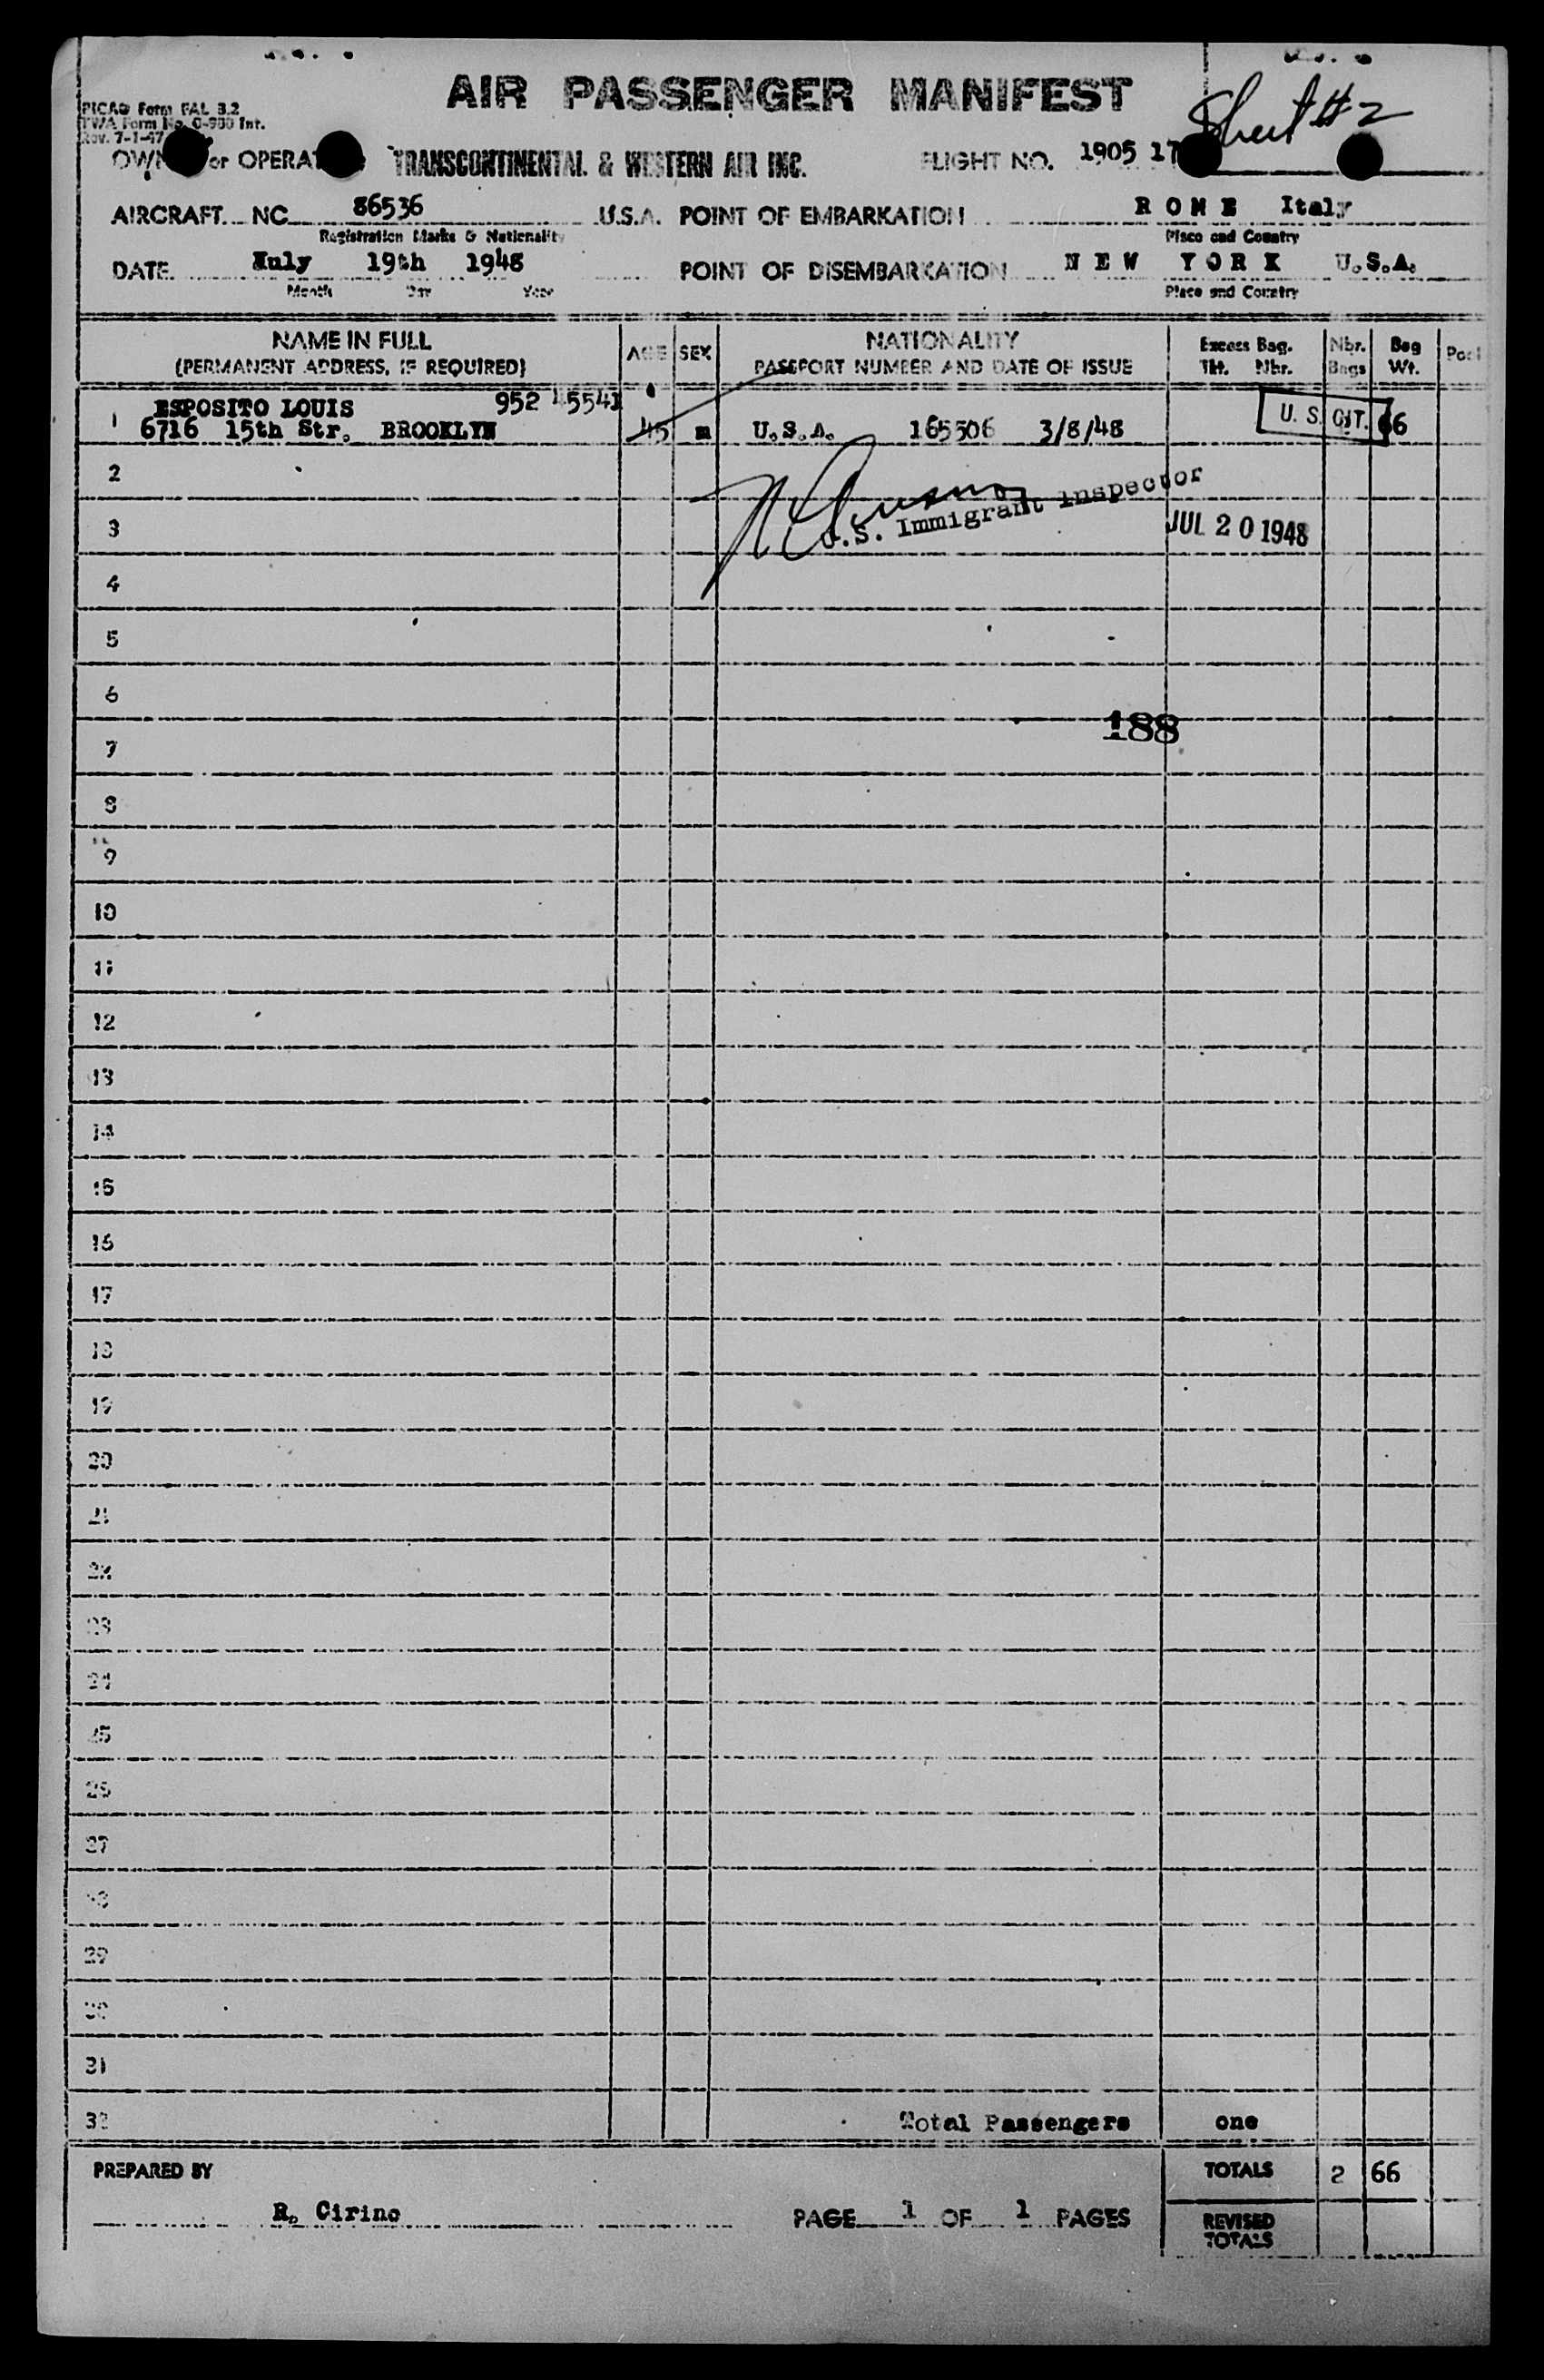 AIR PASSENGER MANIFEST
Sheet #2
PICAO Form FAL 3.2
TWA Form No. O-980 Int.
Rev. 7-1-47
or OPERA TRANSCONTINENTAL & WESTERN AIR INC. FLIGHT NO. 1905 17
AIRCRAFT NC 86536 U.S.A. POINT OF EMBARKATION R O M E Italy
Registration Marks & Nationality Place and Country
DATE July 19th 1948 POINT OF DISEMBARKATION N E W Y O R K U.S.A.
Month Day Year Place and Country
NAME IN FULL AGE SEX NATIONALITY Excess Bag. Nbr. Bag
(PERMANENT ADDRESS, IF REQUIRED) PASSPORT NUMBER AND DATE OF ISSUE Tkt. Nbr. Bags Wt.
ESPOSITO LOUIS 952 45541
1 6716 15th Str. BROOKLYN 45 m U.S.A. 165506 3/8/48 U. S. CIT. 66
2
U.S. Immigrant Inspector
3 JUL 20 1948
4
5
6
188
7
8
9
10
11
12
13
14
15
16
17
18
19
20
21
22
23
24
25
26
27
28
29
30
31
32 Total Passengers one
PREPARED BY TOTALS 2 66
R. Cirino PAGE 1 OF 1 PAGES REVISED
TOTALS